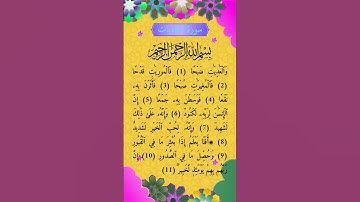 بِسْمِ اللهِ الرَّحْمٰنِ الرَّحِيْمِ
وَٱلْعَٰدِيَٰتِ ضَبْحًا (1) فَٱلْمُورِيَٰتِ قَدْحًا
(2) فَٱلْمُغِيرَٰتِ صُبْحًا (3) فَأَثَرْنَ بِهِۦ
نَقْعًا (4) فَوَسَطْنَ بِهِۦ جَمْعًا (5) إِنَّ
ٱلْإِنسَٰنَ لِرَبِّهِۦ لَكَنُودٌ (6) وَإِنَّهُۥ عَلَىٰ ذَٰلِكَ
لَشَهِيدٌ (7) وَإِنَّهُۥ لِحُبِّ ٱلْخَيْرِ لَشَدِيدٌ
(8) ۞أَفَلَا يَعْلَمُ إِذَا بُعْثِرَ مَا فِي ٱلْقُبُورِ
(9) وَحُصِّلَ مَا فِي ٱلصُّدُورِ (10) إِنَّ
رَبَّهُم بِهِمْ يَوْمَئِذٍ لَّخَبِيرُۢ (11)